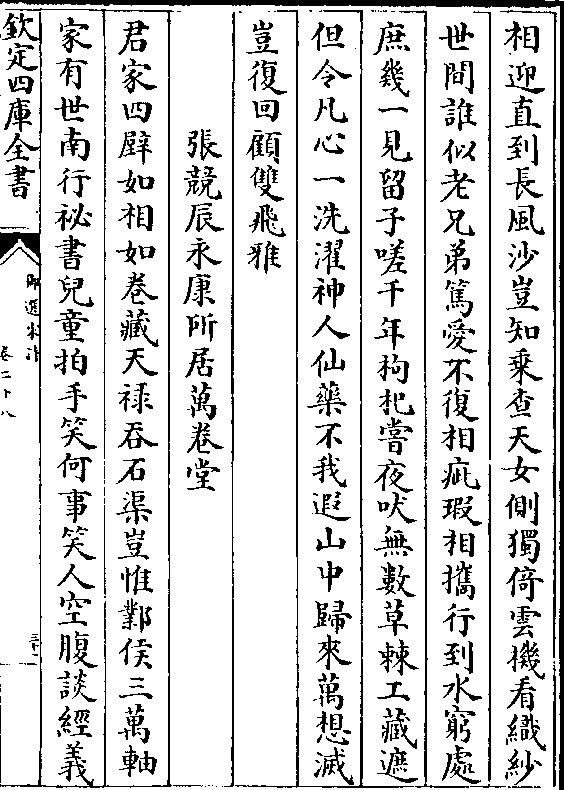 相迎直到長風沙豈知乗查天女側獨倚雲機看織紗
世間誰似老兄弟篤愛不復相疵瑕相攜行到水窮處
庶幾一見留子嗟千年枸杞嘗夜吠無數草棘工藏遮
但令凡心一洗濯神人仙藥不我遐山中歸來萬想滅
豈復回顧雙飛雅
張競辰永康所居萬卷堂
君家四壁如相如卷藏天祿吞石渠豈惟鄴侯三萬軸
家有世南行祕書兒童拍手笑何事笑人空腹談經義
欽定四庫全書
御選宋詩
卷二十八